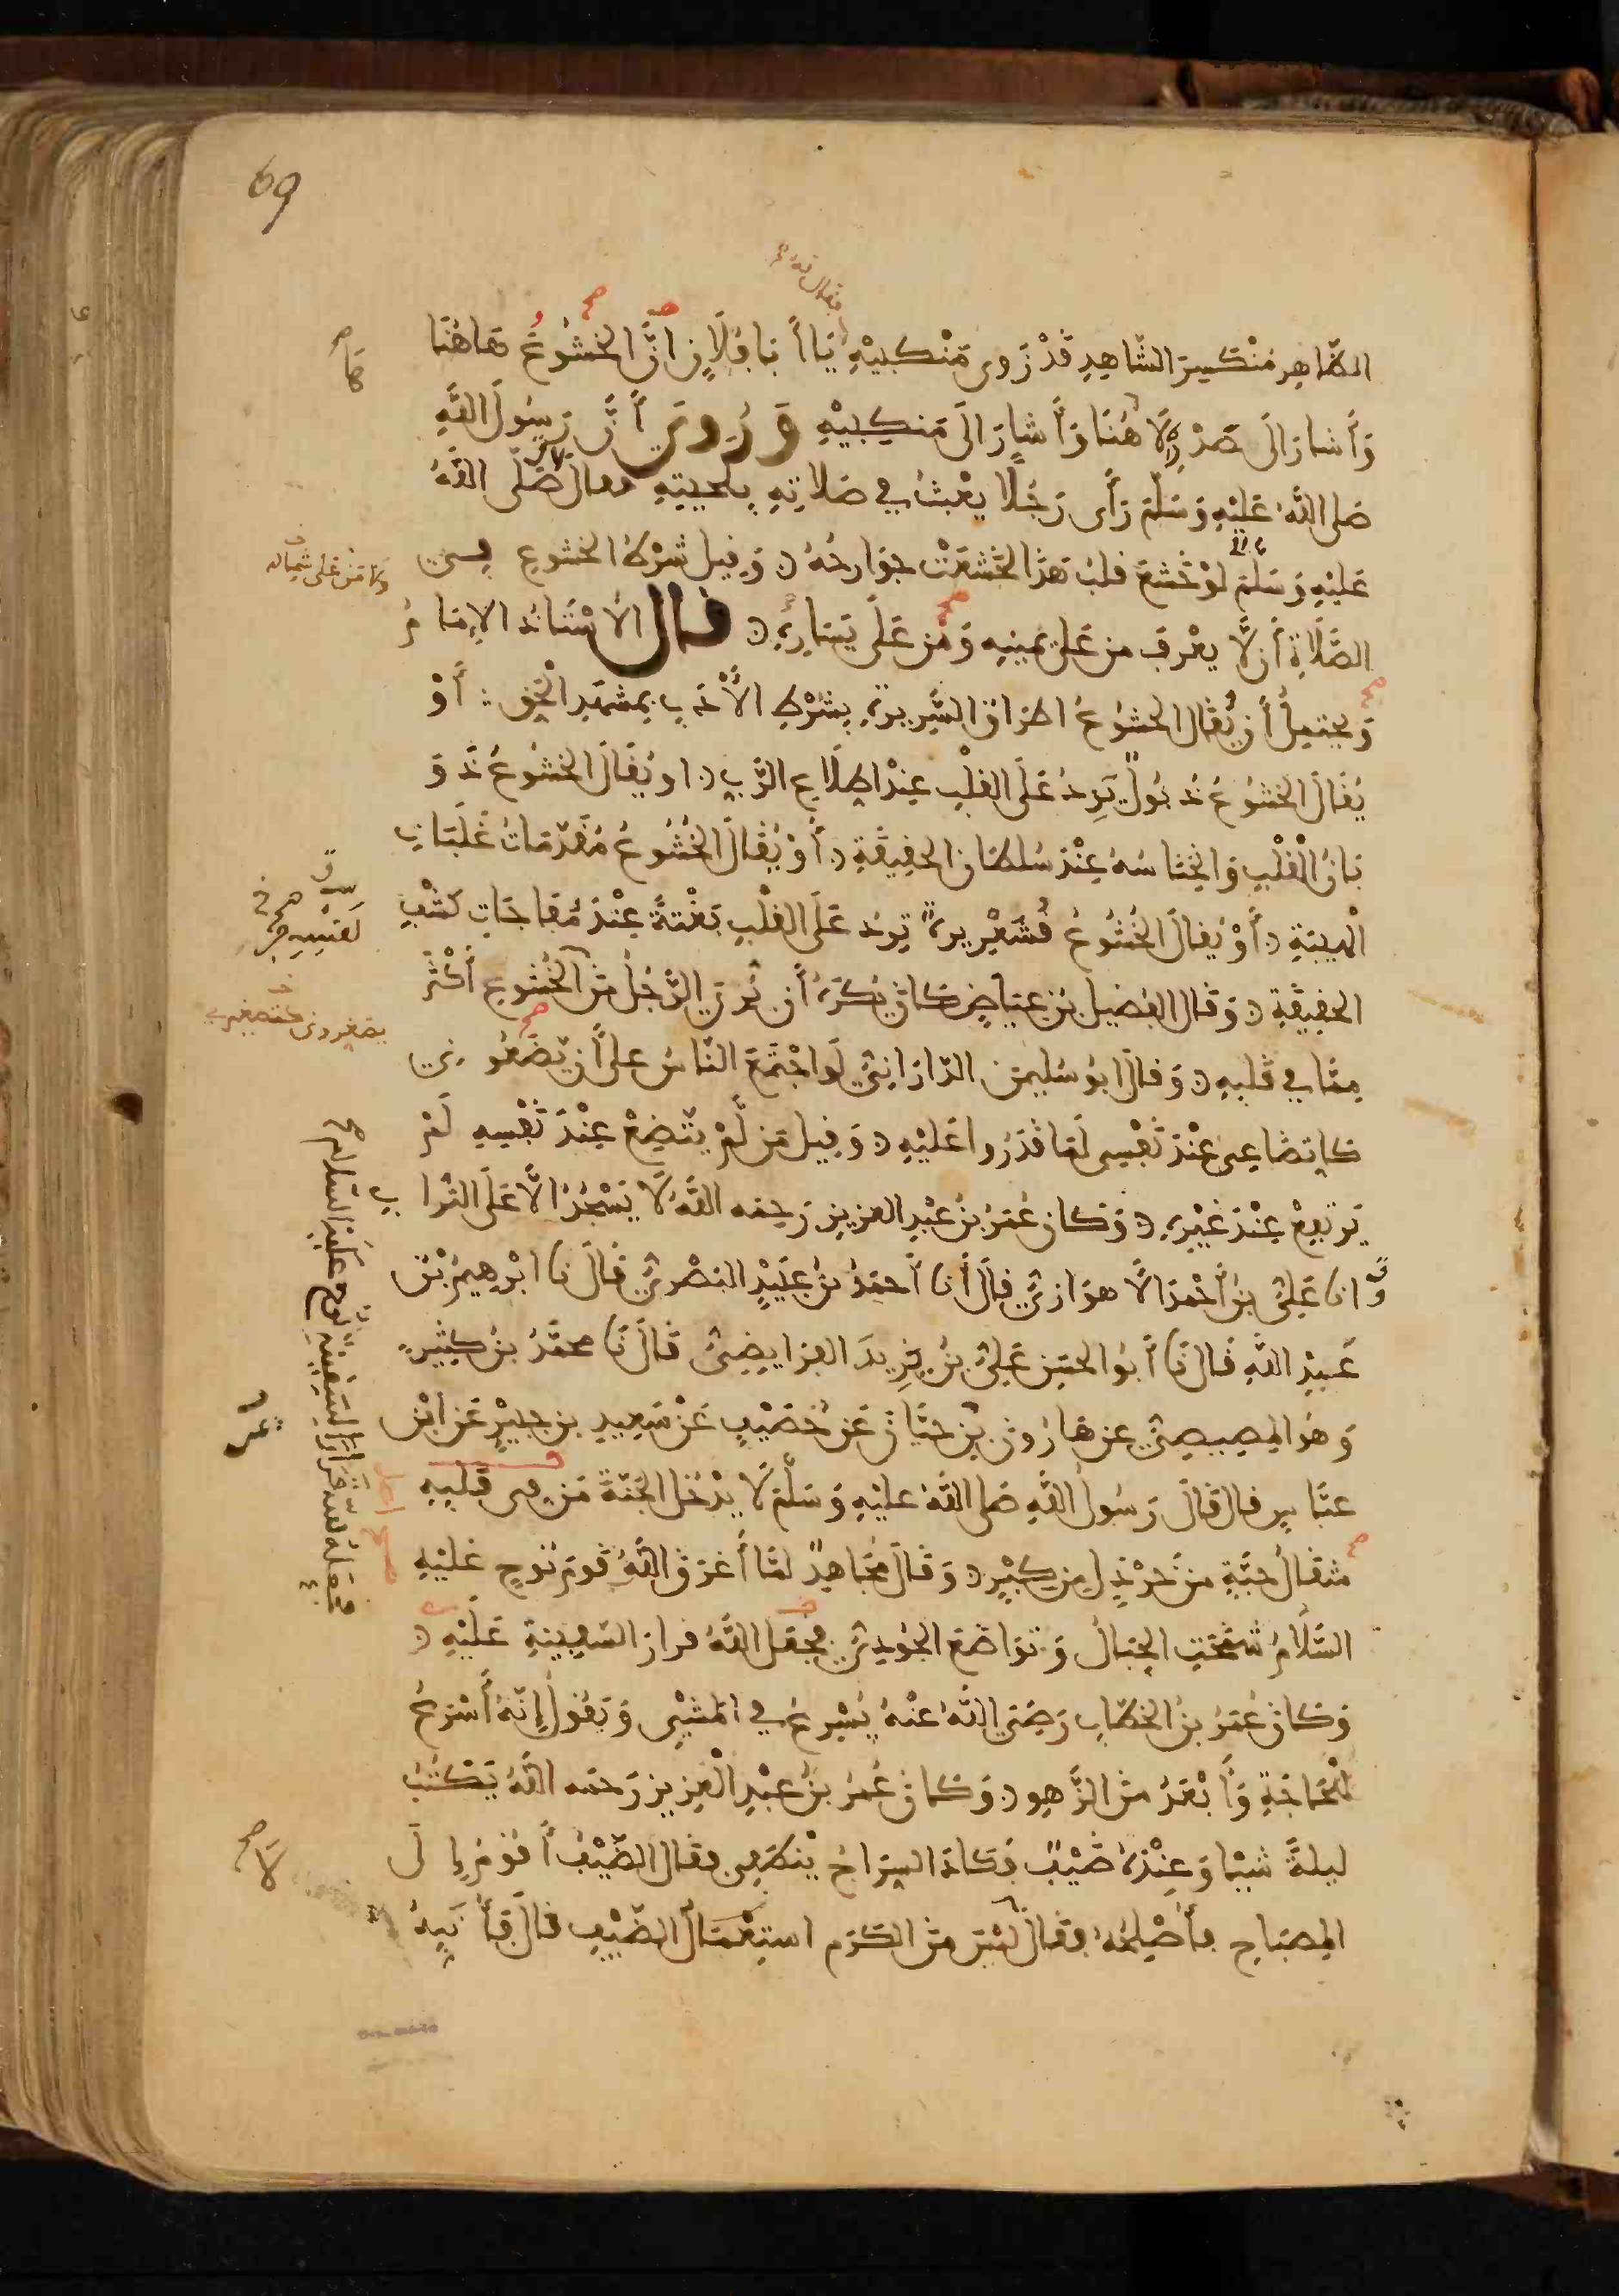 69
فقال له
الظاهر منكسر الشاهد قد زوى منكبيه يا أبا فلان ان الخشوع هاهنا
وأشار الى صدره لا هنا وأشار الى منكبيه وروي أن رسول الله
صلى الله عليه وسلم رأى رجلا يعبث في صلاته بلحيته فقال صلى الله
عليه وسلم لو خشع قلب هذا لخشعت جوارحه وقيل شرط الخشوع في
ولا من على شماله
الصلاة أن لا يعرف من على يمينه ومن على يساره قال الأستاذ الإمام
ويحتمل أن يقال الخشوع اطراق السريرة بشرط الأدب بمشهد الحق أو
يقال الخشوع ذبول يرد على القلب عند اطلاع الرب او يقال الخشوع ذو
بان القلب وانخناسه عند سلطان الحقيقة أو يقال الخشوع مقدمات غلبات
الهيبة أو يقال الخشوع قشعريرة ترد على القلب بغتة عند مفاجات كشف
الحقيقة وقال الفضيل بن عياض كان يكره أن يرى الرجل من الخشوع أكثر
مما في قلبه وقال ابو سليمن الداراني لو اجتمع الناس على أن يضعوني
كاتضاعي عند نفسي لما قدروا عليه وقيل من لم يتضع عند نفسه لم
يرتفع عند غيره وكان عمر بن عبد العزيز رحمه الله لا يسجد الا على التراب
وانا علي بن أحمد الأهوازي قال أنا أحمد بن عبيد البصري قال نا ابرهيم بن
عبيد الله قال نا أبو الحسن علي بن يزيد الفرايضي قال نا محمد بن كثير
وهو المصيصي عن هارون بن حيان عن خصيف عن سعيد بن جبير عن ابن
عباس قال قال رسول الله صلى الله عليه وسلم لا يدخل الجنة من في قلبه
مثقال حبة من خردل من كبر وقال مجاهد لما أغرق الله قوم نوح عليه
السلام شمخت الجبال وتواضع الجودي فجعل الله قرار السفينة عليه
فجعله الله قرارا لسفينة نوح عليه السلام
وكان عمر بن الخطاب رضي الله عنه يسرع في المشي ويقول إنه أسرع
للحاجة وأبعد من الزهو وكان عمر بن عبد العزيز رحمه الله يكتب
ليلة شيئا وعنده ضيف فكاد السراج ينطفي فقال الضيف أقوم إلى
المصباح فأصلحه فقال ليس من الكرم استعمال الضيف قال فأنبه